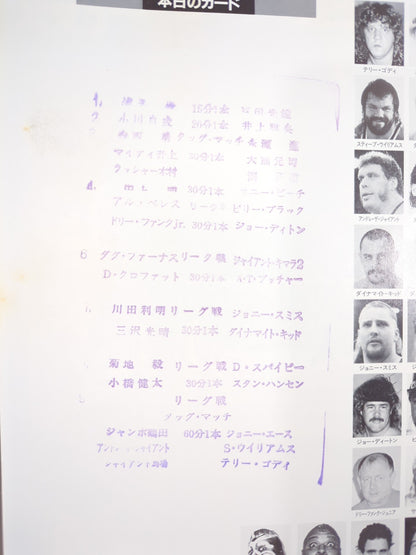 本日のカード
1. 15分1本
2. 小川良成 20分1本 井上雅央
3 タッグ・マッチ
マイティ井上 30分1本 大熊元司
ラッシャー木村
4. 30分1本 サニー・ビーチ
アル・ペレス リーグ戦 ビリー・ブラック
ドリー・ファンクjr. 30分1本 ジョー・ディトン
6 ダグ・ファーナス リーグ戦 ジャイアント・キマラ2
D・クロファット 30分1本 A・T・ブッチャー
川田利明 リーグ戦 ジョニー・スミス
三沢光晴 30分1本 ダイナマイト・キッド
菊地 毅 リーグ戦 D・スパイビー
小橋健太 30分1本 スタン・ハンセン
リーグ戦
タッグ・マッチ
ジャンボ鶴田 60分1本 ジョニー・エース
アンドレ・ザ・ジャイアント S・ウイリアムス
ジャイアント馬場 テリー・ゴディ
テリー・ゴディ
スティーブ・ウイリアムス
アンドレ・ザ・ジャイアント
ダイナマイト・キッド
ジョニー・スミス
ジョー・ディートン
ドリー・ファンク・ジュニア